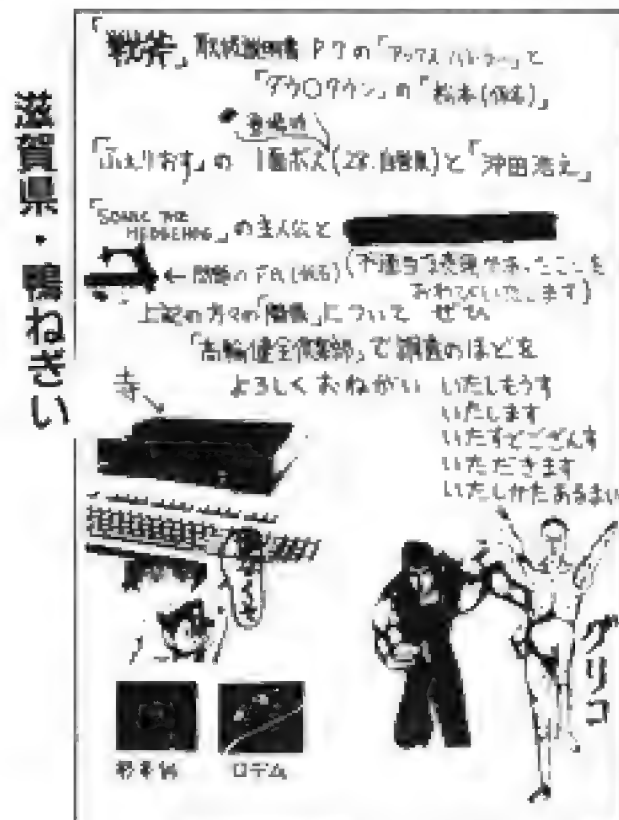 滋賀県・鴨ねぎい
「戦斧」取扱説明書 P7の「アックスバトラー」と
「ダウ〇タウン」の「松本(仮名)」
登場時
「ふぇりおす」の 1面ボス(2次.自警現)と「沖田浩之」
「SONIC THE
HEDGEHOG」の主人公と
←問題のFR(仮名)(不適当な表現があったことを
おわびいたします)
上記の方々の「関係」について ぜひ
「高輪健全倶楽部」で調査のほどを
よろしくおねがい いたしもうす
いたします
いたすでござんす
いただきます
いたしかたあるまい
寺
グリコ
ロデム